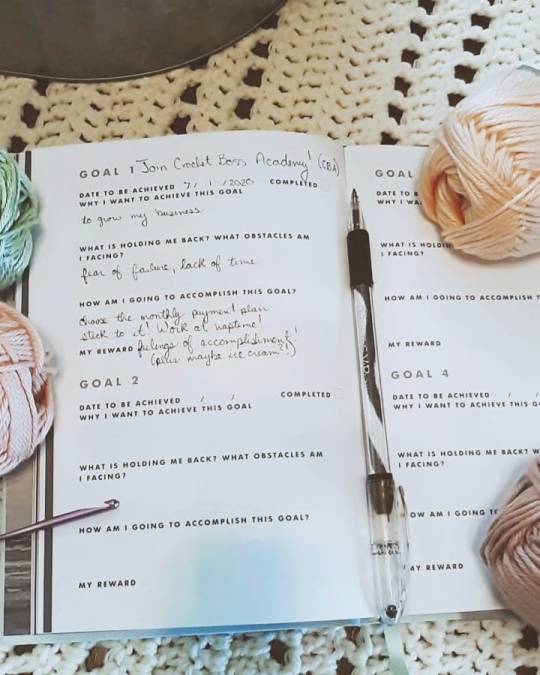 GOAL 1 Join Crochet Boss Academy! (CBA)
DATE TO BE ACHIEVED 7 / 1 / 2020 COMPLETED
WHY I WANT TO ACHIEVE THIS GOAL
to grow my business
WHAT IS HOLDING ME BACK? WHAT OBSTACLES AM
I FACING?
fear of failure, lack of time
HOW AM I GOING TO ACCOMPLISH THIS GOAL?
choose the monthly payment plan
stick to it! Work at naptime!
MY REWARD feelings of accomplishment!
(plus maybe ice cream?!)
GOAL 2
DATE TO BE ACHIEVED / / COMPLETED
WHY I WANT TO ACHIEVE THIS GOAL
WHAT IS HOLDING ME BACK? WHAT OBSTACLES AM
I FACING?
HOW AM I GOING TO ACCOMPLISH THIS GOAL?
MY REWARD
GOAL
DATE TO
WHY I
WHAT IS
I FACING?
HOW AM I GOING TO ACCOMPLISH
MY REWARD
GOAL 4
DATE TO BE ACHIEVED
WHY I WANT TO ACHIEVE THIS
WHAT IS HOLDING ME BACK?
I FACING?
HOW AM I GOING TO
MY REWARD